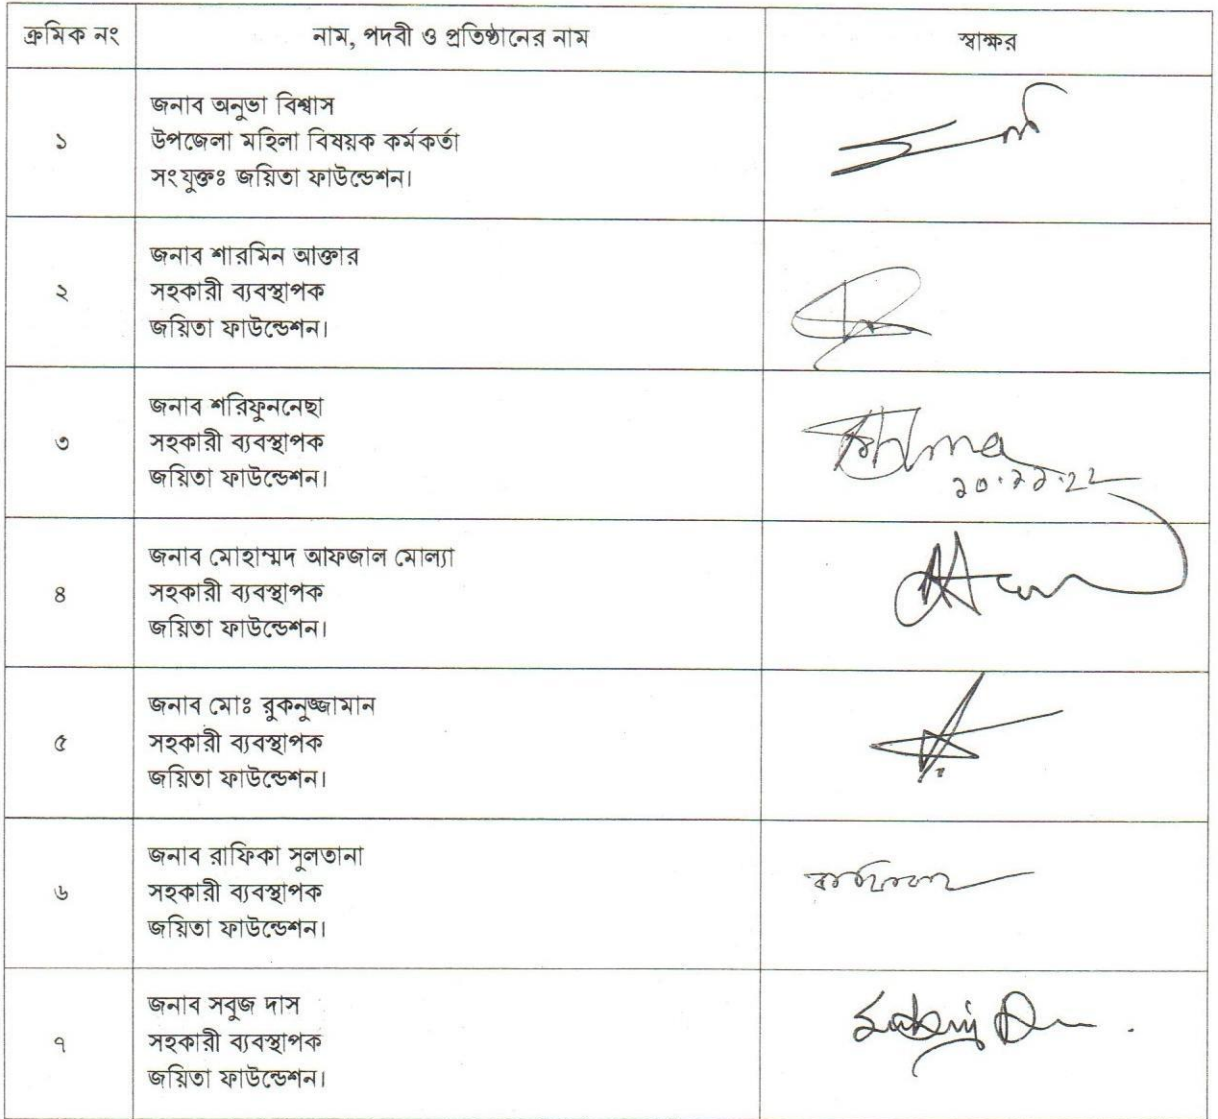 ক্রমিক নং নাম, পদবী ও প্রতিষ্ঠানের নাম স্বাক্ষর
জনাব অনুভা বিশ্বাস
১ উপজেলা মহিলা বিষয়ক কর্মকর্তা
সংযুক্তঃ জয়িতা ফাউন্ডেশন।
জনাব শারমিন আক্তার
২ সহকারী ব্যবস্থাপক
জয়িতা ফাউন্ডেশন।
জনাব শরিফুননেছা
৩ সহকারী ব্যবস্থাপক
জয়িতা ফাউন্ডেশন।
জনাব মোহাম্মদ আফজাল মোল্যা
৪ সহকারী ব্যবস্থাপক
জয়িতা ফাউন্ডেশন।
জনাব মোঃ রুকনুজ্জামান
৫ সহকারী ব্যবস্থাপক
জয়িতা ফাউন্ডেশন।
জনাব রাফিকা সুলতানা
৬ সহকারী ব্যবস্থাপক
জয়িতা ফাউন্ডেশন।
জনাব সবুজ দাস
৭ সহকারী ব্যবস্থাপক
জয়িতা ফাউন্ডেশন।